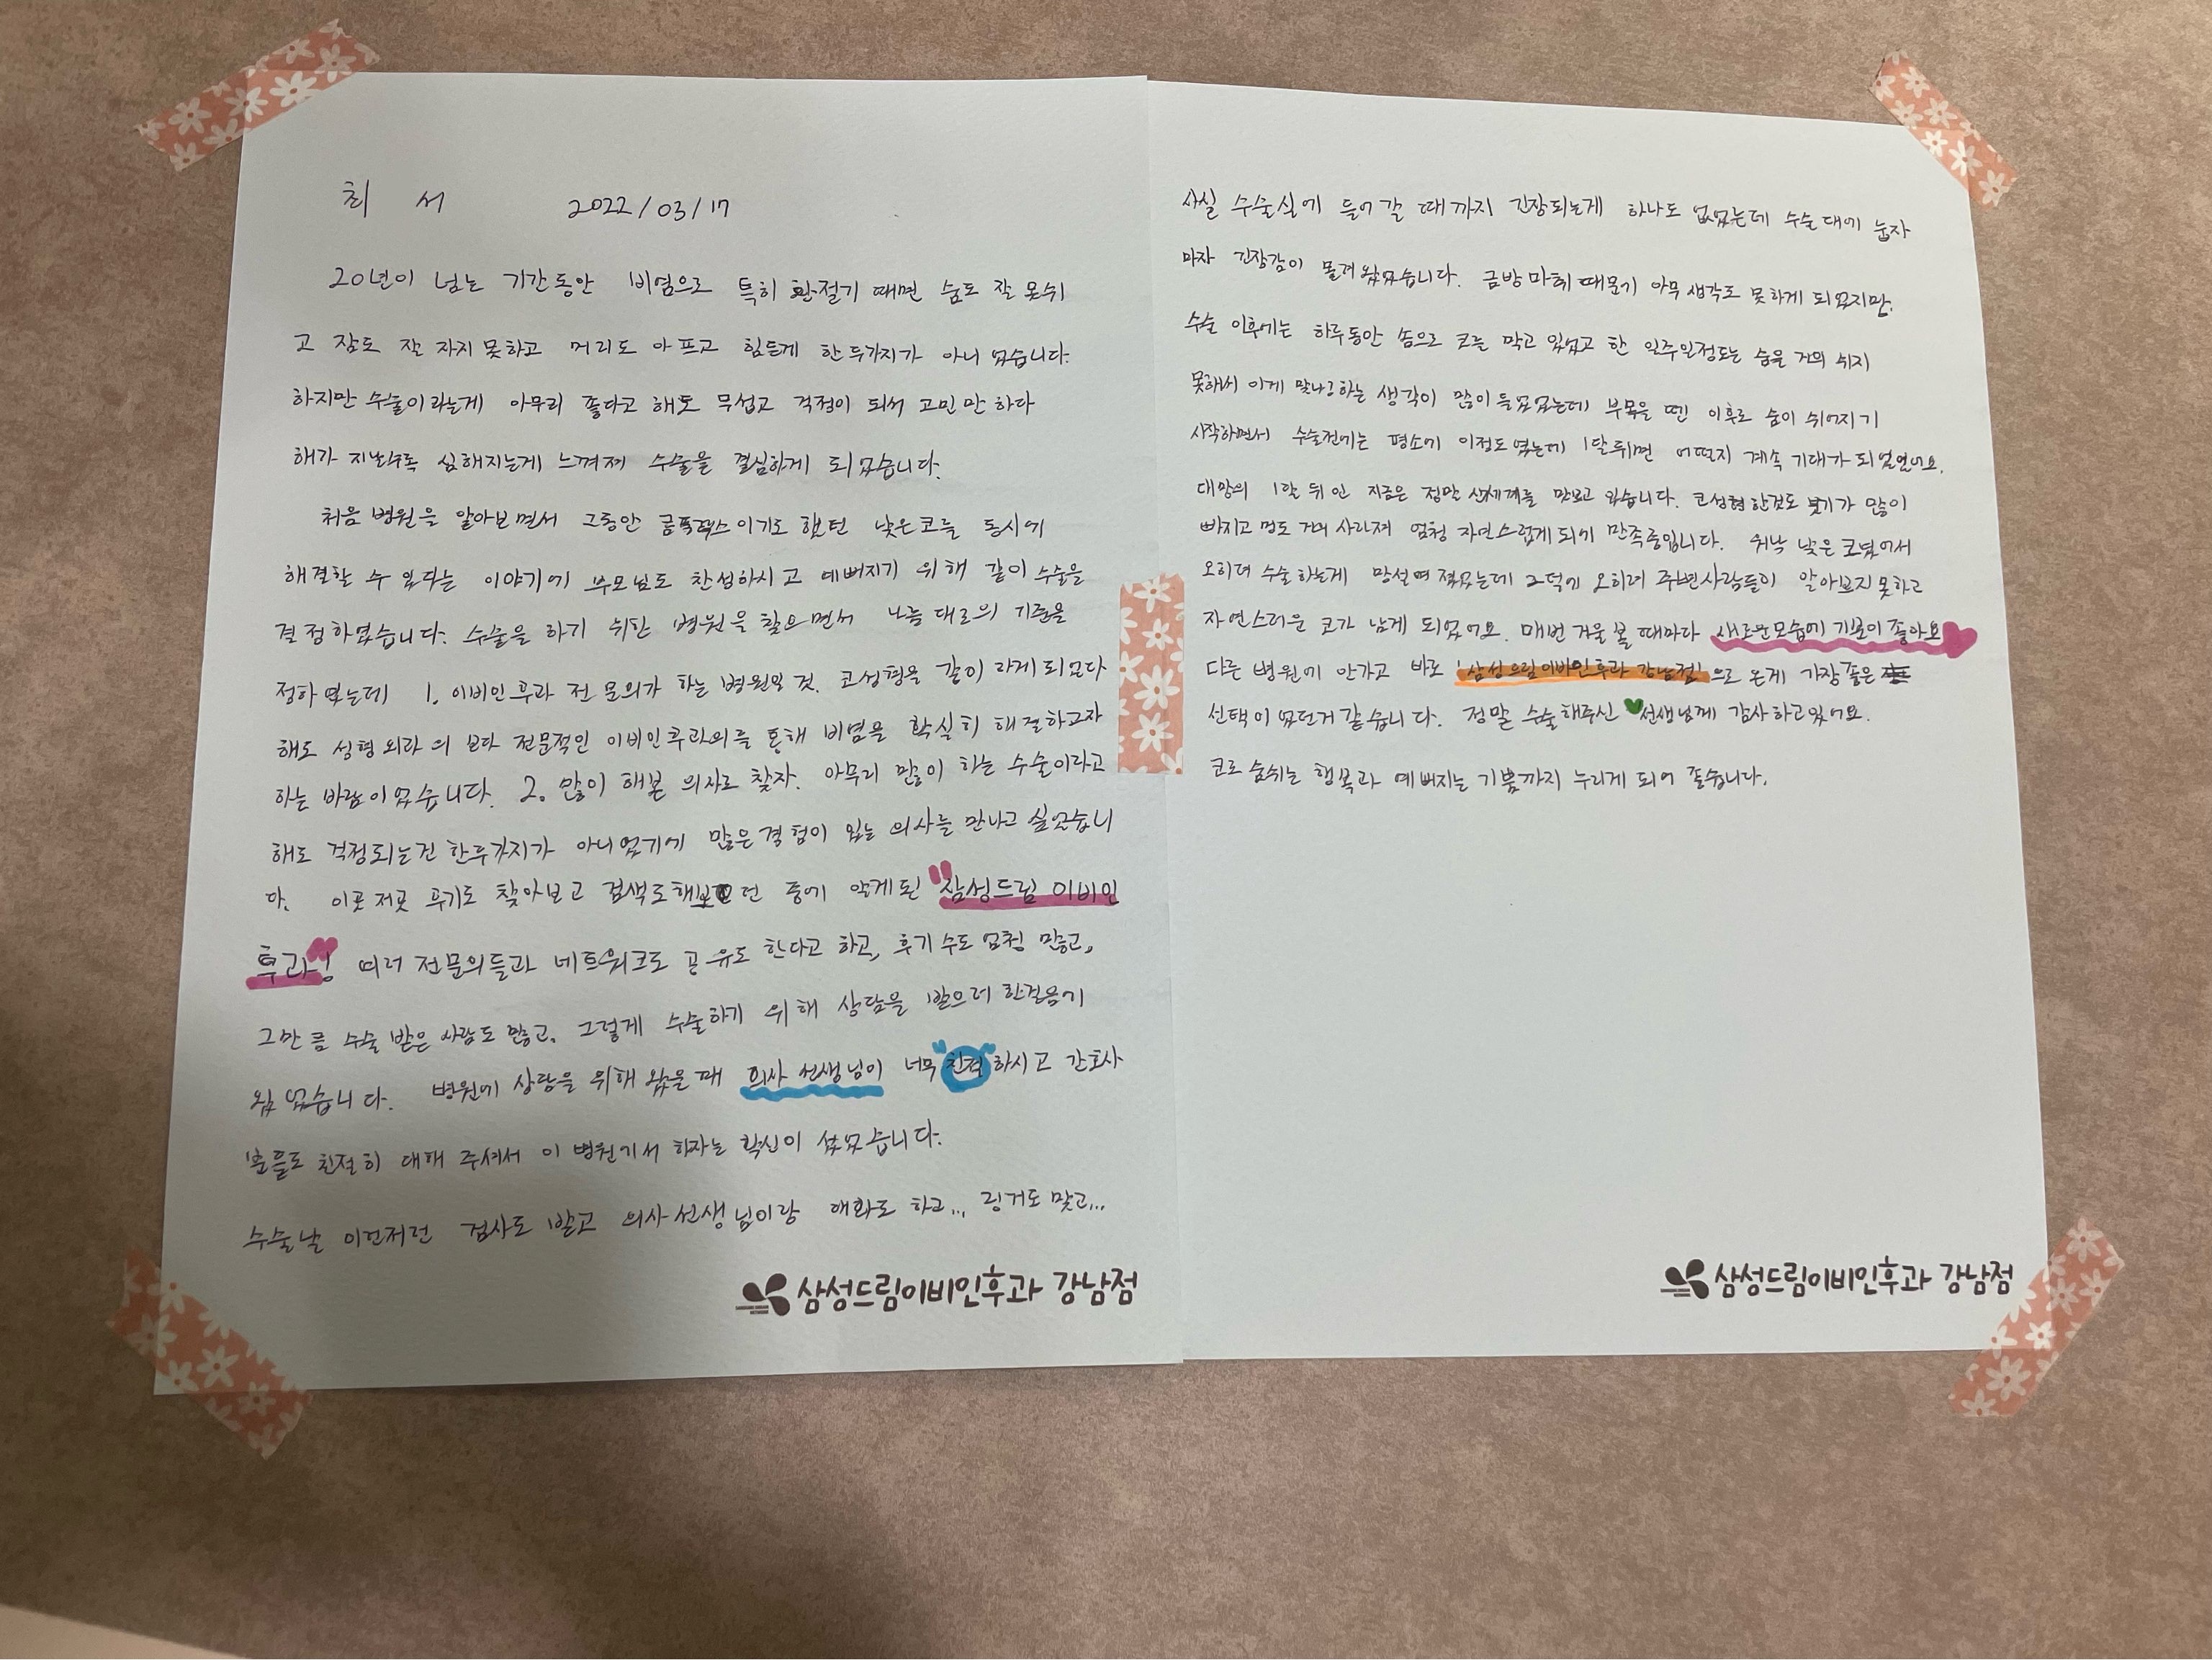 최 서 2022/03/17
20년이 넘는 기간동안 비염으로 특히 환절기 때면 숨도 잘 못쉬
고 잠도 잘 자지 못하고 머리도 아프고 힘든게 한두가지가 아니였습니다.
하지만 수술이라는게 아무리 좋다고 해도 무섭고 걱정이 되서 고민만 하다
해가 지날수록 심해지는게 느껴져 수술을 결심하게 되었습니다.
처음 병원을 알아보면서 그동안 콤플렉스이기도 했던 낮은코를 동시에
해결할 수 있다는 이야기에 부모님도 찬성하시고 예뻐지기 위해 같이 수술을
결정하였습니다. 수술을 하기 위한 병원을 찾으면서 나름대로의 기준을
정하였는데 1. 이비인후과 전문의가 하는 병원일 것. 코성형을 같이 하게되었다
해도 성형외과의 보다 전문적인 이비인후과의를 통해 비염을 확실히 해결하고자
하는 바람이였습니다. 2. 많이 해본 의사로 찾자. 아무리 많이 하는 수술이라고
해도 걱정되는건 한두가지가 아니였기에 많은경험이 있는 의사를 만나고 싶었습니
다. 이곳저곳 후기도 찾아보고 검색도해보던 중에 알게된 "삼성드림 이비인
후과"! 여러 전문의들과 네트워크도 공유도 한다고 하고, 후기수도 엄청 많고,
그만큼 수술 받은 사람도 많고. 그렇게 수술하기 위해 상담을 받으러 한걸음에
왔었습니다. 병원에 상담을 위해 왔을때 의사 선생님이 너무 "친절"하시고 간호사
분들도 친절히 대해 주셔서 이 병원에서 하자는 확신이 섰었습니다.
수술날 이런저런 검사도 받고 의사선생님이랑 대화도 하고... 링거도 맞고...
삼성드림이비인후과 강남점
사실 수술실에 들어갈 때까지 긴장되는게 하나도 없었는데 수술대에 눕자
마자 긴장감이 몰려왔었습니다. 금방 마취때문에 아무생각도 못하게 되었지만.
수술 이후에는 하루동안 솜으로 코를 막고 있었고 한 일주일정도는 숨을 거의 쉬지
못해서 이게 맞나?하는 생각이 많이 들었었는데 부목을 뗀 이후로 숨이 쉬어지기
시작하면서 수술전에는 평소에 이정도였는데 1달뒤면 어떤지 계속 기대가 되었었어요.
대망의 1달 뒤인 지금은 정말 신세계를 맛보고 있습니다. 코성형한것도 붓기가 많이
빠지고 멍도 거의 사라져 엄청 자연스럽게 되어 만족중입니다. 워낙 낮은 코였어서
오히려 수술하는게 망설여졌었는데 그덕에 오히려 주변사람들이 알아보지못하고
자연스러운 코가 남게 되었어요. 매번 거울볼 때마다 새로운모습에 기분이 좋아요
다른 병원에 안가고 바로 '삼성드림이비인후과 강남점'으로 온게 가장좋은
선택이 였던거 같습니다. 정말 수술해주신 선생님께 감사하고있어요.
코로 숨쉬는 행복과 예뻐지는 기쁨까지 누리게 되어 좋습니다.
삼성드림이비인후과 강남점